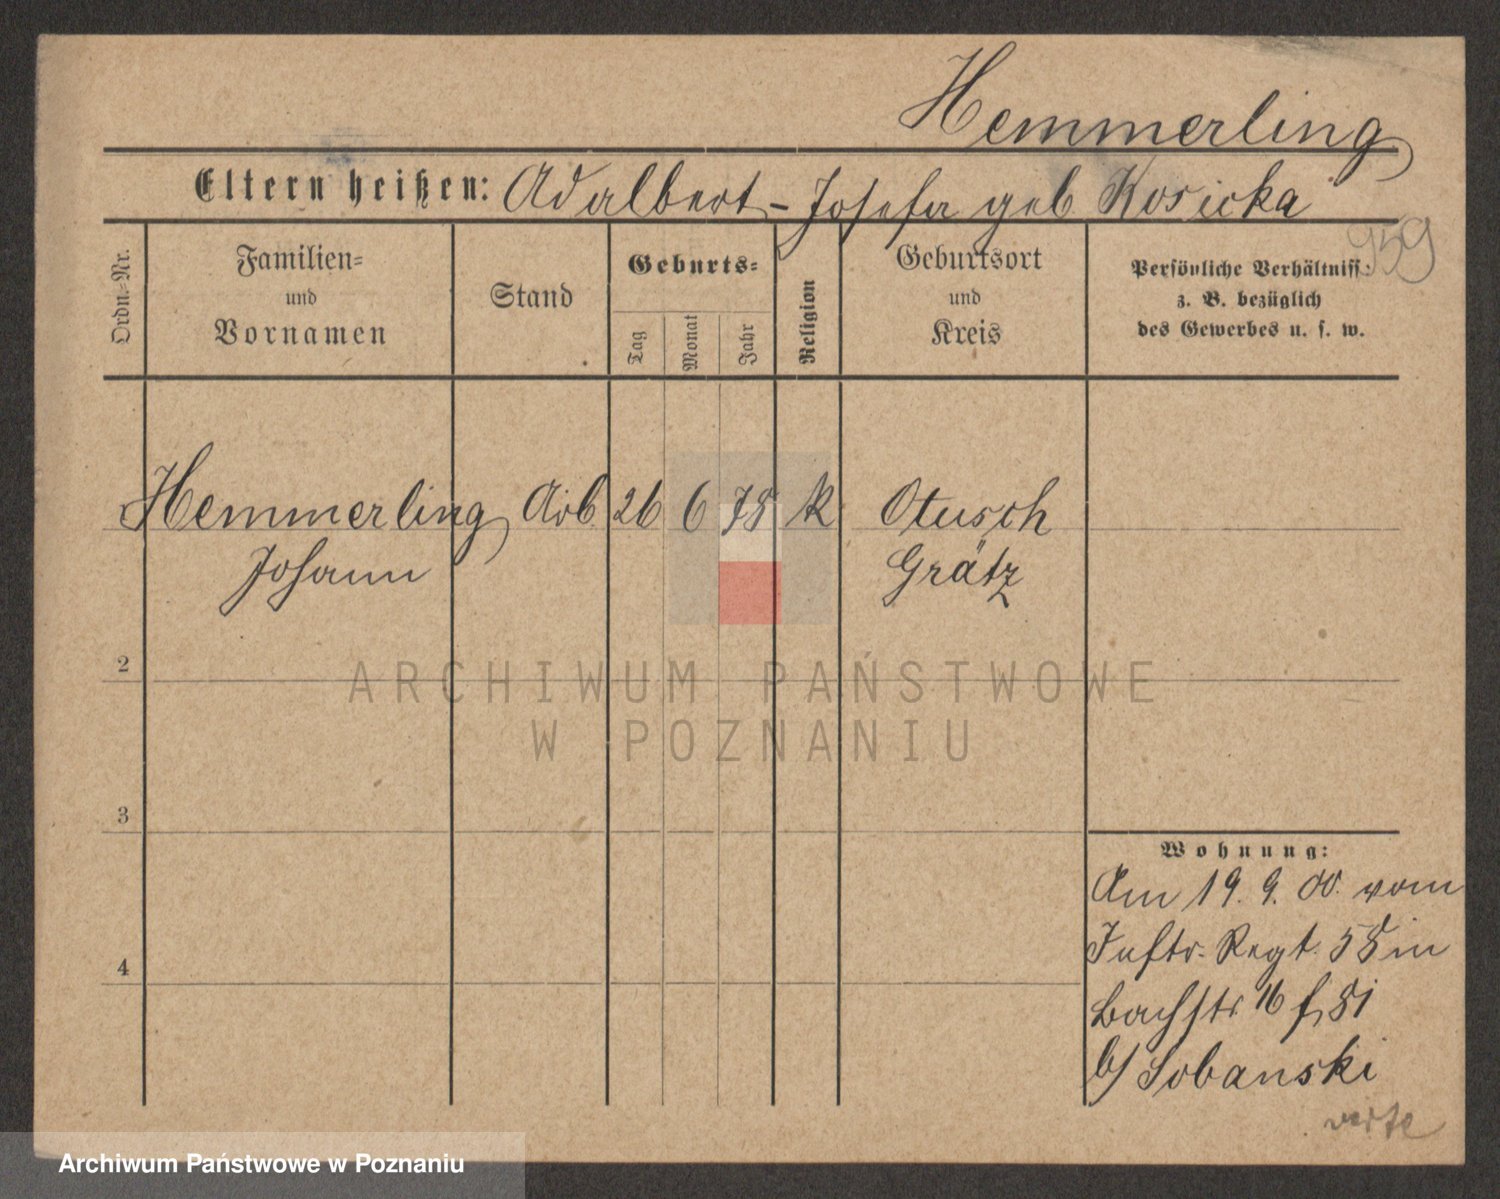 Hemmerling
Eltern heißen: Adalbert - Josefa geb Kosicka
959
Ordn.-Nr.
Familien-
und
Vornamen
Stand
Geburts-
Tag
Monat
Jahr
Religion
Geburtsort
und
Kreis
Persönliche Verhältniss.
z. B. bezüglich
des Gewerbes u. s. w.
Hemmerling Arb 26 6 78 k Otusch
Johann Grätz
2
ARCHIWUM PAŃSTWOWE
W POZNANIU
3
Wohnung:
Am 19. 9. 00. vom
Inftr. Regt. 58 in
4
Bachstr 16
b/ Sobanski
verte
Archiwum Państwowe w Poznaniu